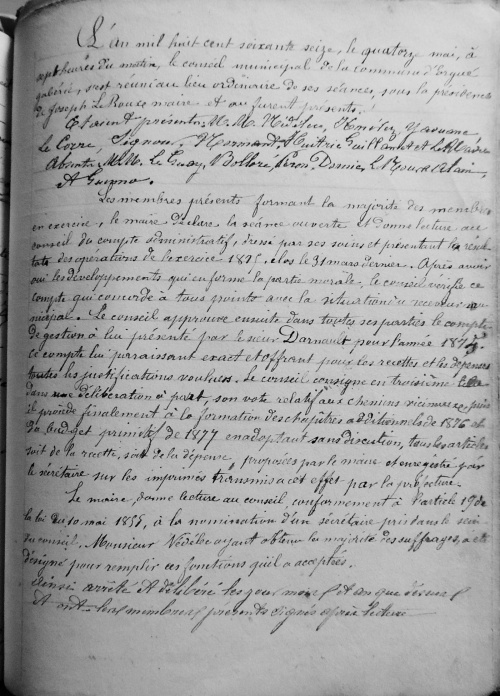 L'An mil huit cent soixante seize, le quatorze mai, à
sept heures du matin, le conseil municipal de la commune d'Ergué
gabéric, s'est réuni au lieu ordinaire de ses séances, sous la présidence
de Joseph Le Roux maire et au furent présents.
Etaient présents, M.M. Nédélec,
Le Corre, Signour, Normant, Huitric et
Absents M.M. Le Guay, Bolloré, Riou, Le Roux Alain,
A Guenno.
Les membres présents formant la majorité des membres
en exercice, le maire déclare la séance ouverte et donne lecture au
conseil du compte administratif, dressé par ses soins et présentant les résul
tats des opérations de l'exercice 1875, clos le 31 mars dernier. Après avoir
oui les développements qui en forme la partie morale, le conseil vérifie ce
compte qui concorde à tous points avec la situation du receveur mu
nicipal. Le conseil approuve ensuite dans toutes ses parties le compte
de gestion à lui présenté par le sieur Darnault pour l'année 1875
ce compte lui parraissant exact et offrant pour les recettes et les dépenses
toutes les justifications voulues. Le conseil consigne en troisième lieu
dans une délibération à part, son vote relatif aux chemins vicinaux, puis
il procède finalement à la formation des chapitres additionnels de 1876 et
du budget primitif de 1877 en adoptant sans discution, tous les articles
soit de la recette, soit de la dépense, proposés par le maire et enregistré par
le sécrétaire sur les imprimés transmis à cet effet par la préfecture.
Le maire donne lecture au conseil conformément à l'article 19 de
la loi du 10 mai 1855, à la nomination d'un sécrétaire pris dans le sein
du conseil. Monsieur Nédélec ayant obtenu la majorité des suffrages, a été
désigné pour remplir ces fonctions qu'il a acceptées.
Ainsi arrêté et délibéré les jour, mois et an que dessus
Et ont les membres présents signés après lecture